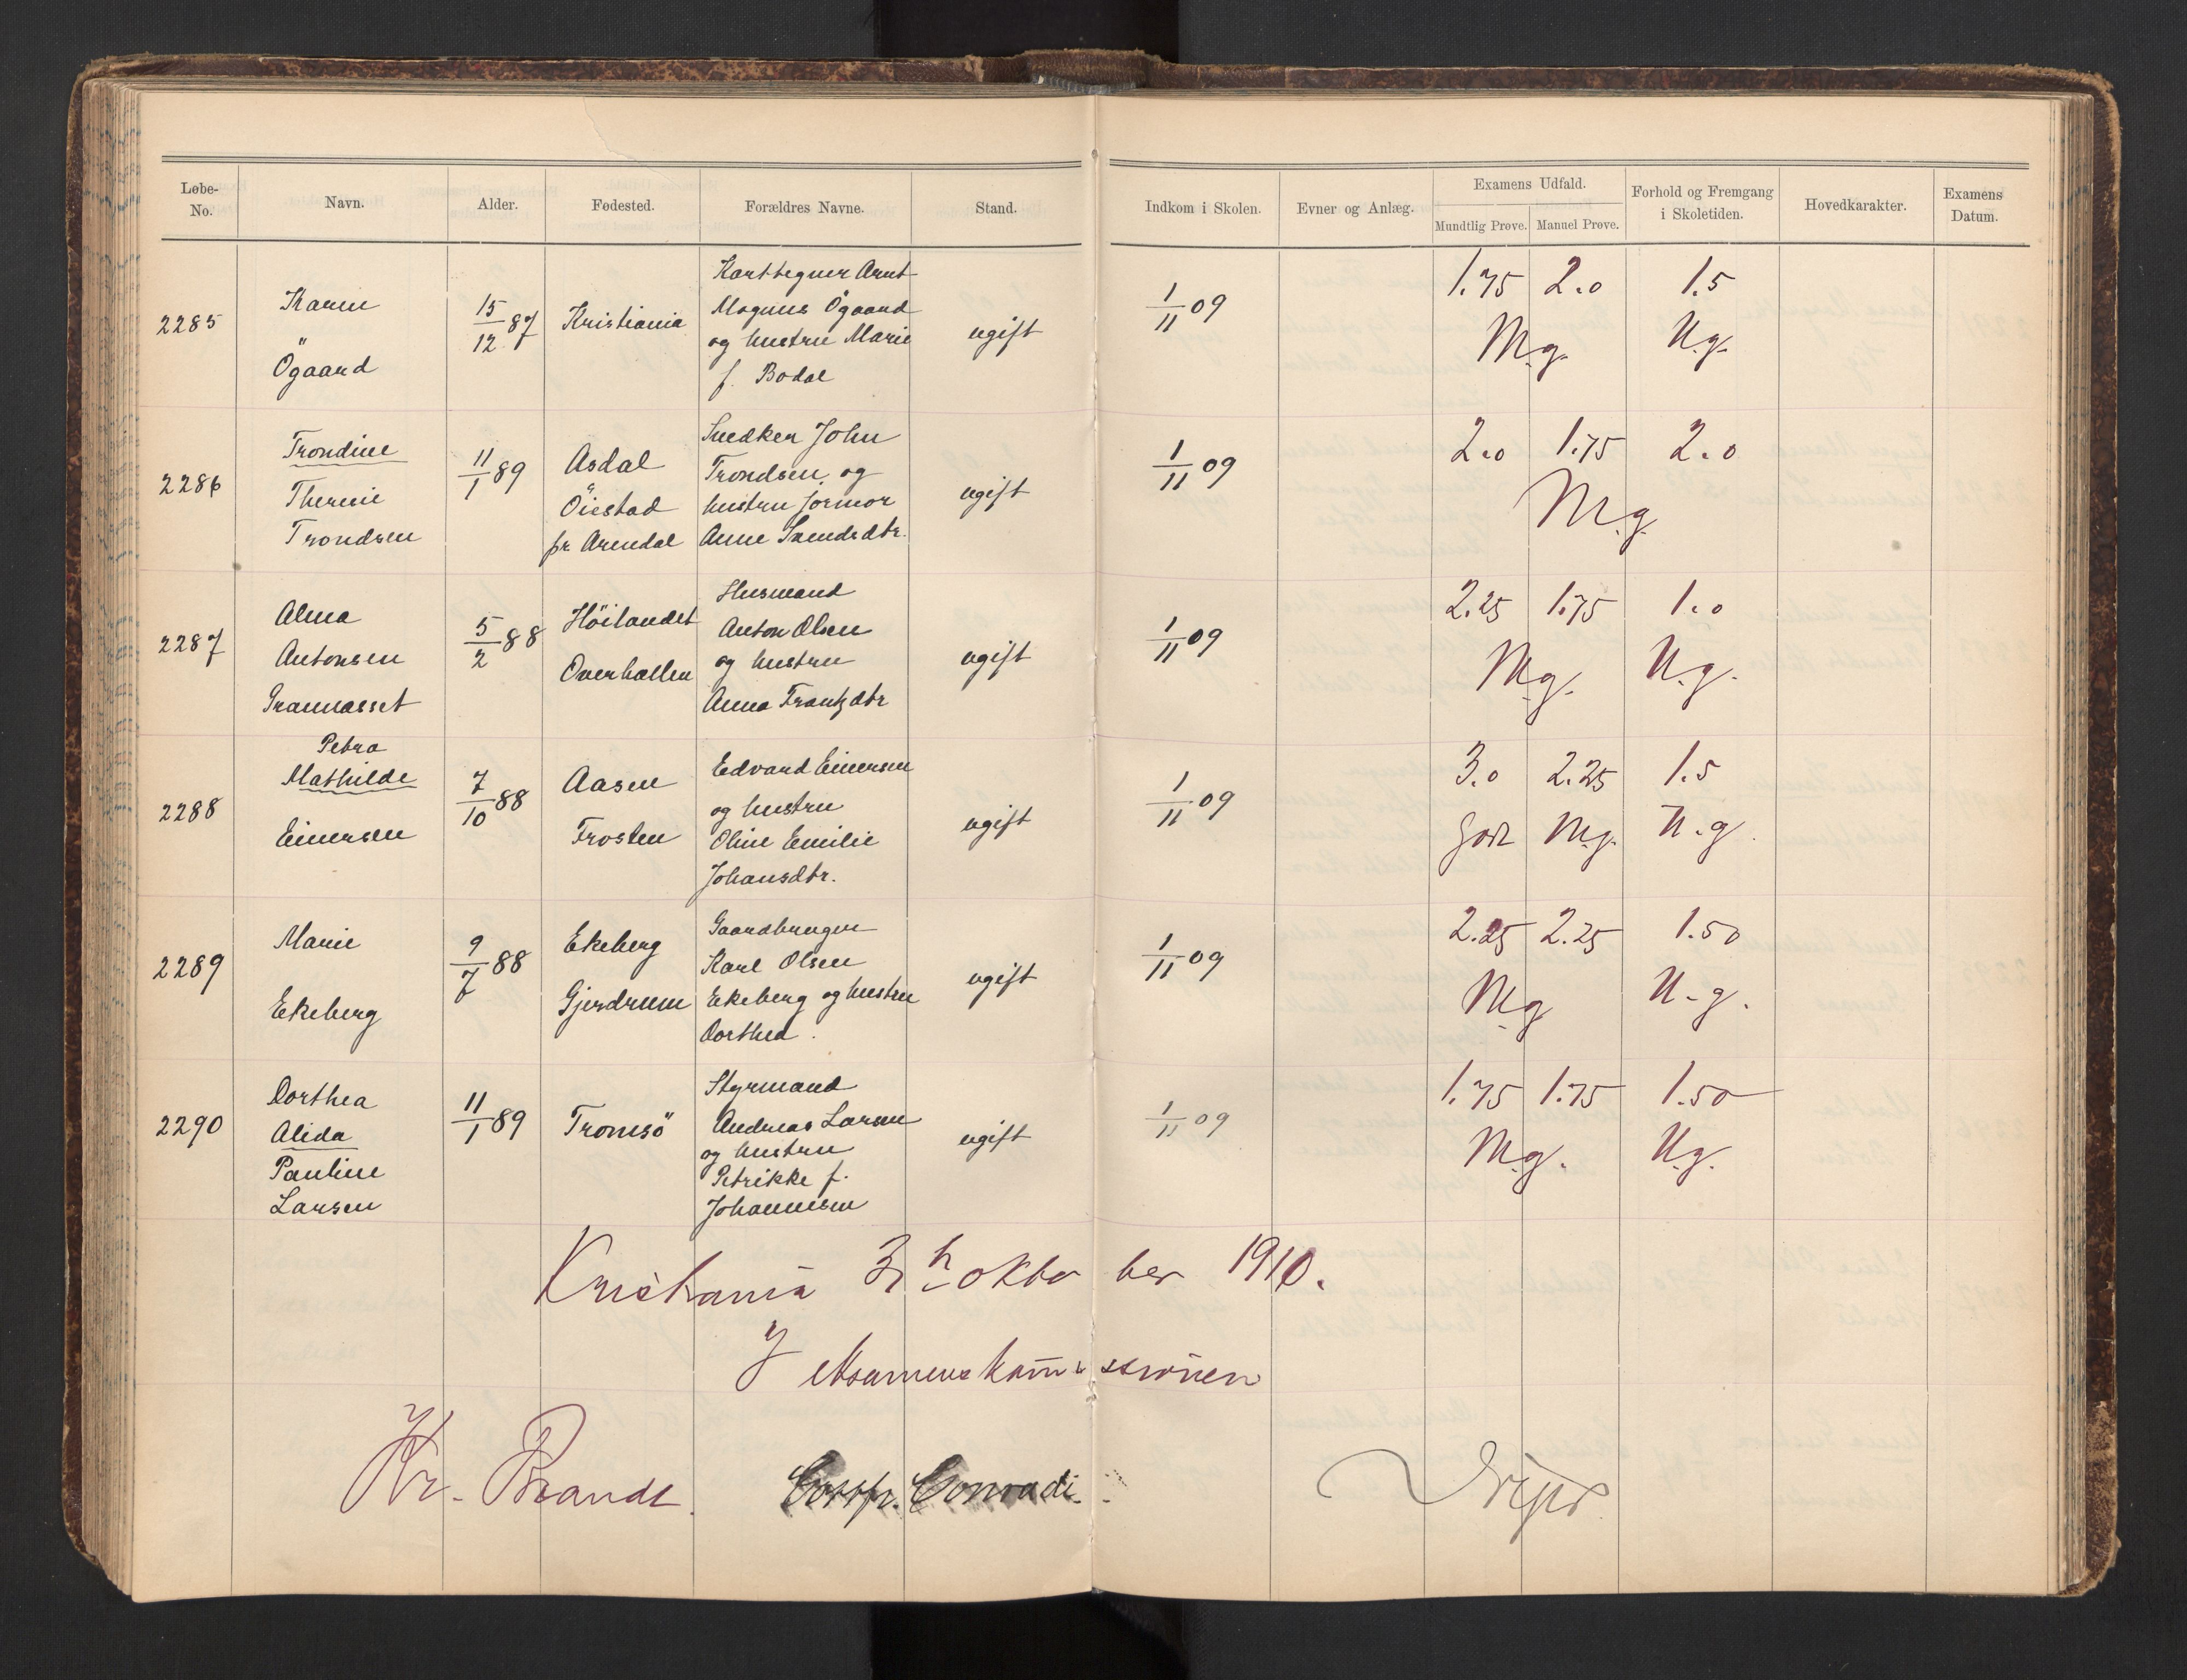 Løbe-No. Navn. Alder. Fødested. Forældres Navne. Stand. Indkom i Skolen. Evner og Anlæg. Examens Udfald. Mundtlig Prøve. Manuel Prøve. Forhold og Fremgang i Skoletiden. Hovedkarakter. Examens Datum.
2285
Karen
Ögaard
15/12 87
Kristiania
Karttegner Arnt
Magnus Ögaard
og hustru Marie
f. Bodal
ugift
1/11 09
1.75 2.0 1.5
M.g. U.g.
2286
Trondine
Therese
Trondsen
11/1 89
Asdal
Öiestad
pr Arendal
Snedker John
Trondsen og
hustru Jormor
Anne Svendsdtr.
ugift
1/11 09
2.0 1.75 2.0
M.g.
2287
Alma
Antonsen
Grannasset
5/2 88
Höilandet
Overhallen
Husmand
Anton Olsen
og hustru
Anna Frantzdtr
ugift
1/11 09
2.25 1.75 1.0
M.g. U.g.
2288
Petra
Mathilde
Einersen
7/10 88
Aasen
Frosten
Edvard Einersen
og hustru
Oline Emilie
Johansdtr.
ugift
1/11 09
3.0 2.25 1.5
God M.g. U.g.
2289
Marie
Ekeberg
9/7 88
Ekeberg
Gjerdrum
Gaardbruger
Karl Olsen
Ekeberg og hustru
Dorthea.
ugift
1/11 09
2.25 2.25 1.50
M.g U.g.
2290
Dorthea
Alida
Pauline
Larsen
11/1 89
Tromsö
Styrmand
Andreas Larsen
og hustru
Petrikke f.
Johannesen
ugift
1/11 09
1.75 1.75 1.50
M.g. U.g.
Kristiania oktober 1910.
I eksamenskommissionen
Kr. Brandt. Conradi.